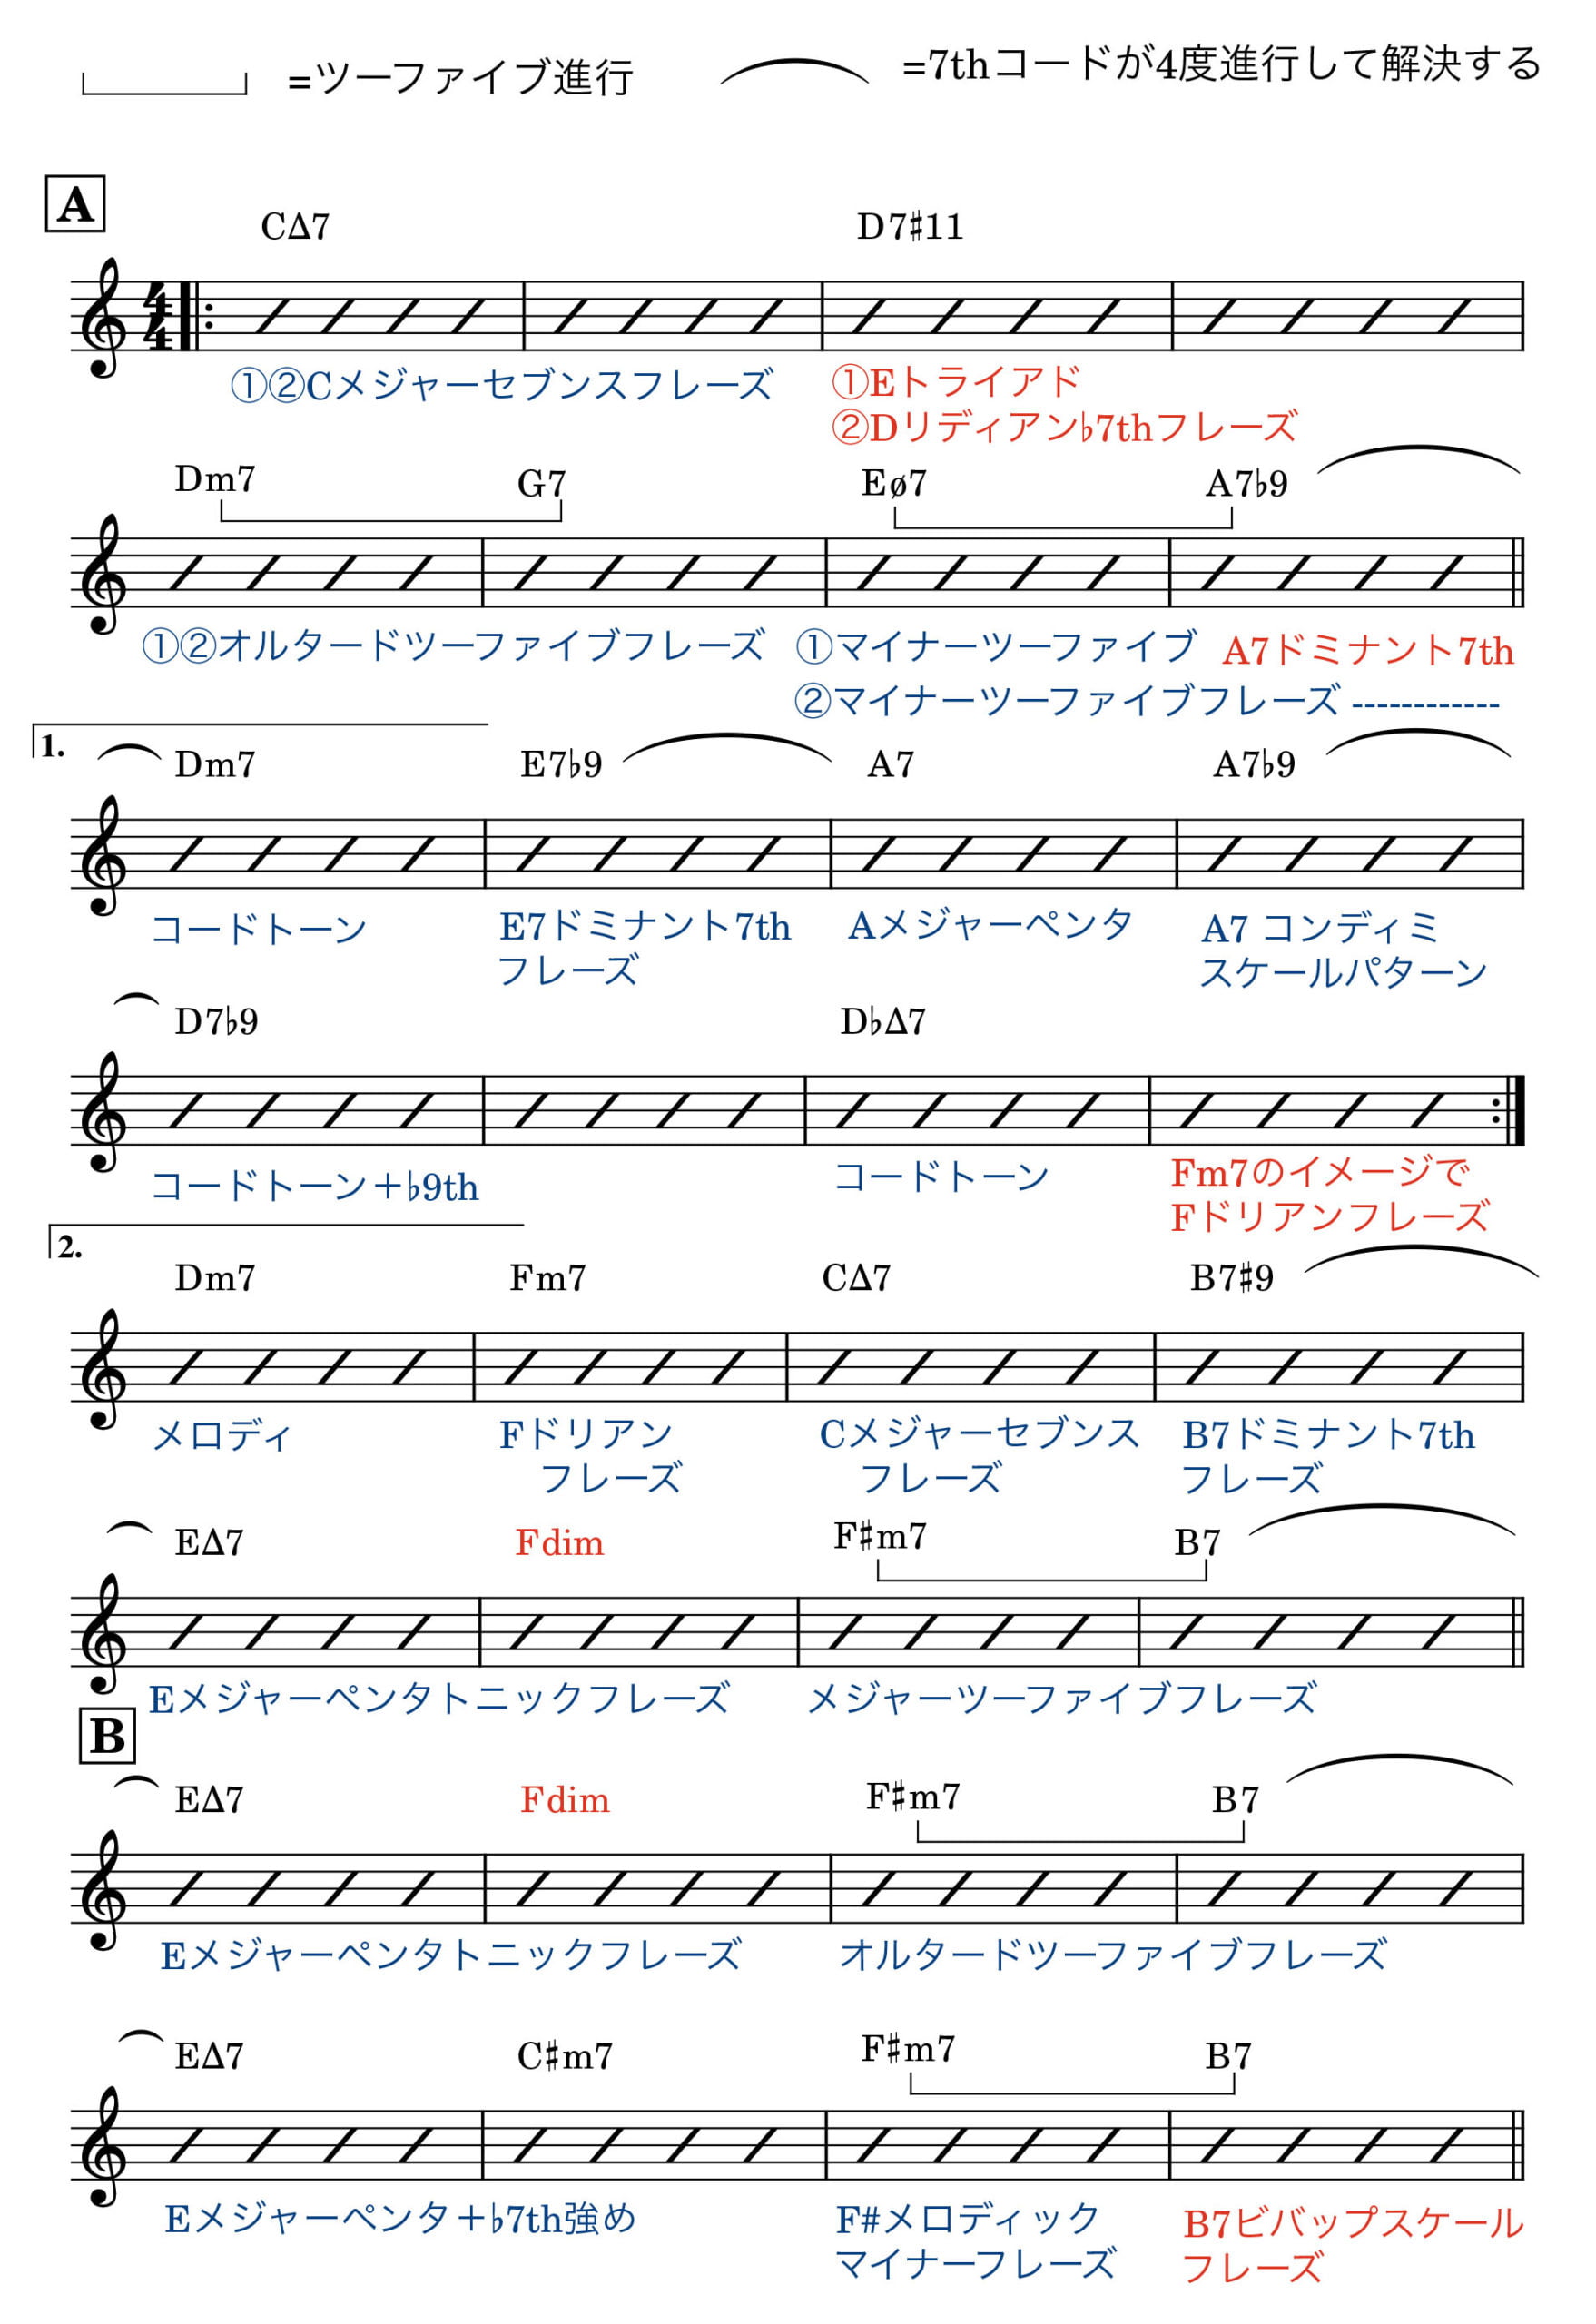 =ツーファイブ進行 =7thコードが4度進行して解決する
A
C∆7 D7♯11
4
4
①②Cメジャーセブンスフレーズ ①Eトライアド
②Dリディアン♭7thフレーズ
Dm7 G7 Eø7 A7♭9
①②オルタードツーファイブフレーズ ①マイナーツーファイブ A7ドミナント7th
②マイナーツーファイブフレーズ ------------
1.
Dm7 E7♭9 A7 A7♭9
コードトーン E7ドミナント7th Aメジャーペンタ A7 コンディミ
フレーズ スケールパターン
D7♭9 D♭∆7
コードトーン＋♭9th コードトーン Fm7のイメージで
Fドリアンフレーズ
2.
Dm7 Fm7 C∆7 B7♯9
メロディ Fドリアン Cメジャーセブンス B7ドミナント7th
フレーズ フレーズ フレーズ
E∆7 Fdim F♯m7 B7
Eメジャーペンタトニックフレーズ メジャーツーファイブフレーズ
B
E∆7 Fdim F♯m7 B7
Eメジャーペンタトニックフレーズ オルタードツーファイブフレーズ
E∆7 C♯m7 F♯m7 B7
Eメジャーペンタ＋♭7th強め F#メロディック B7ビバップスケール
マイナーフレーズ フレーズ